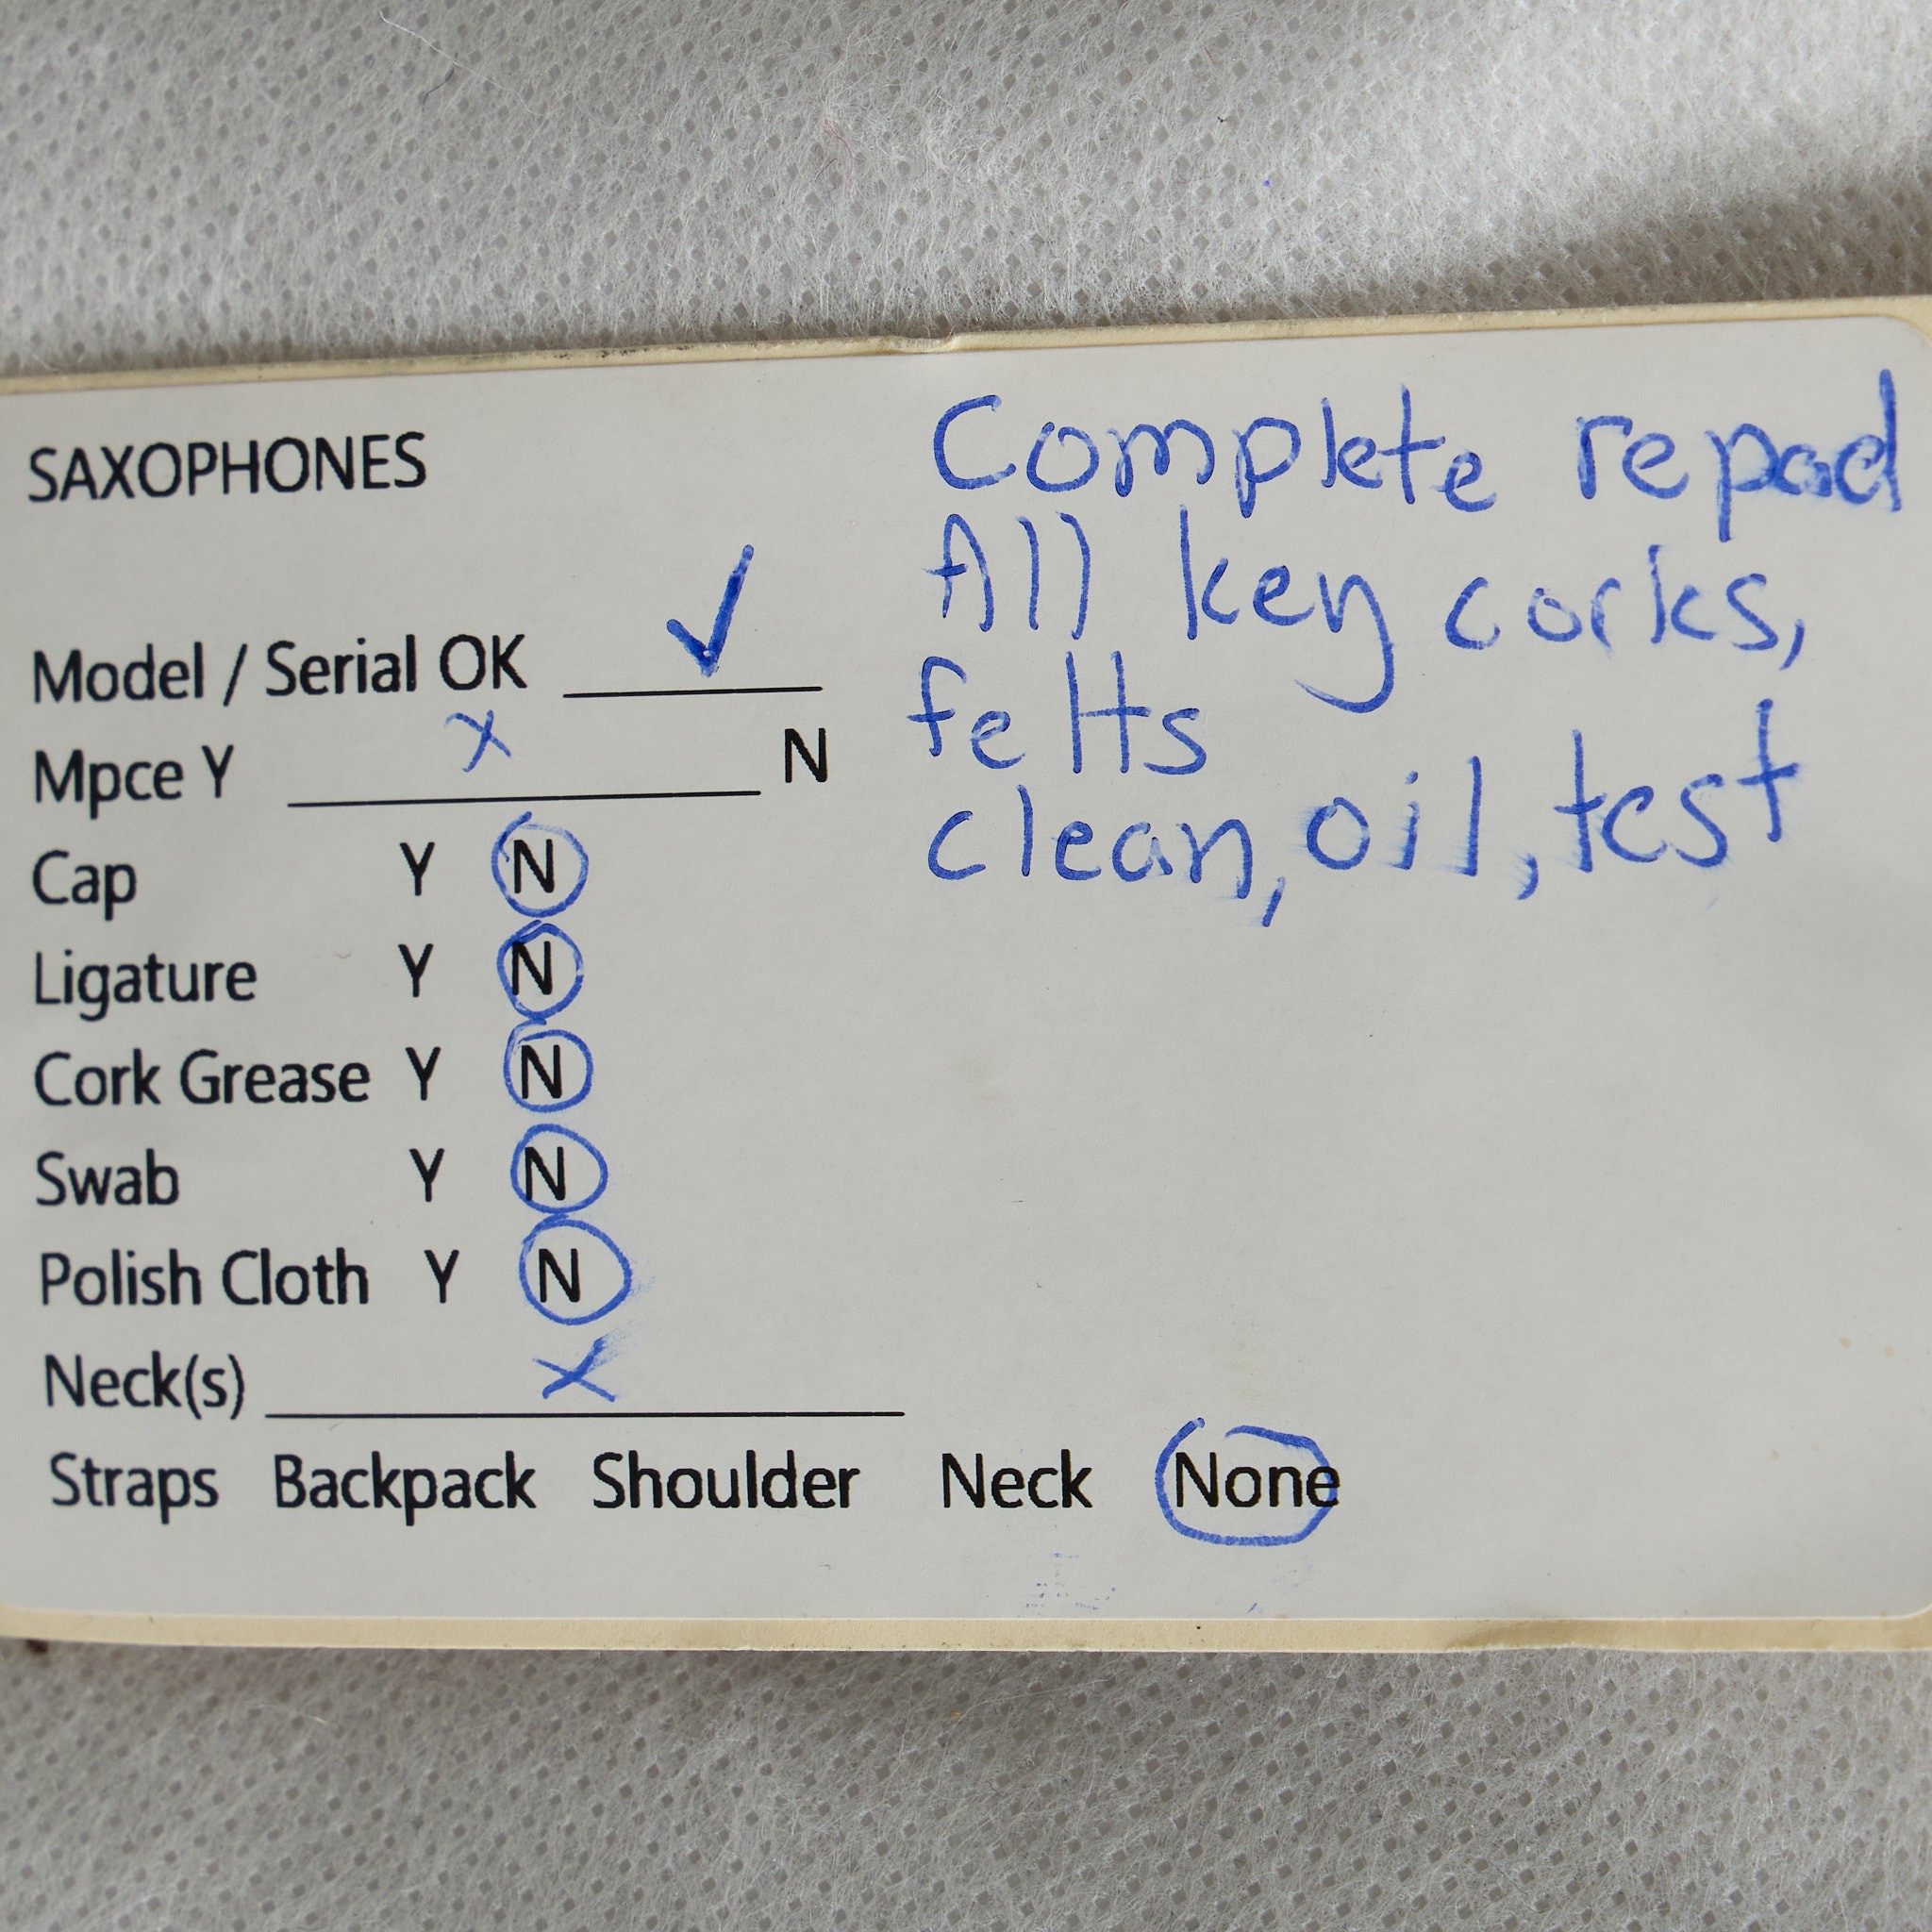 SAXOPHONES
Complete repad
All key corks,
felts
clean, oil, test
Model / Serial OK ✓
Mpce Y X N
Cap Y N
Ligature Y N
Cork Grease Y N
Swab Y N
Polish Cloth Y N
Neck(s) X
Straps Backpack Shoulder Neck None